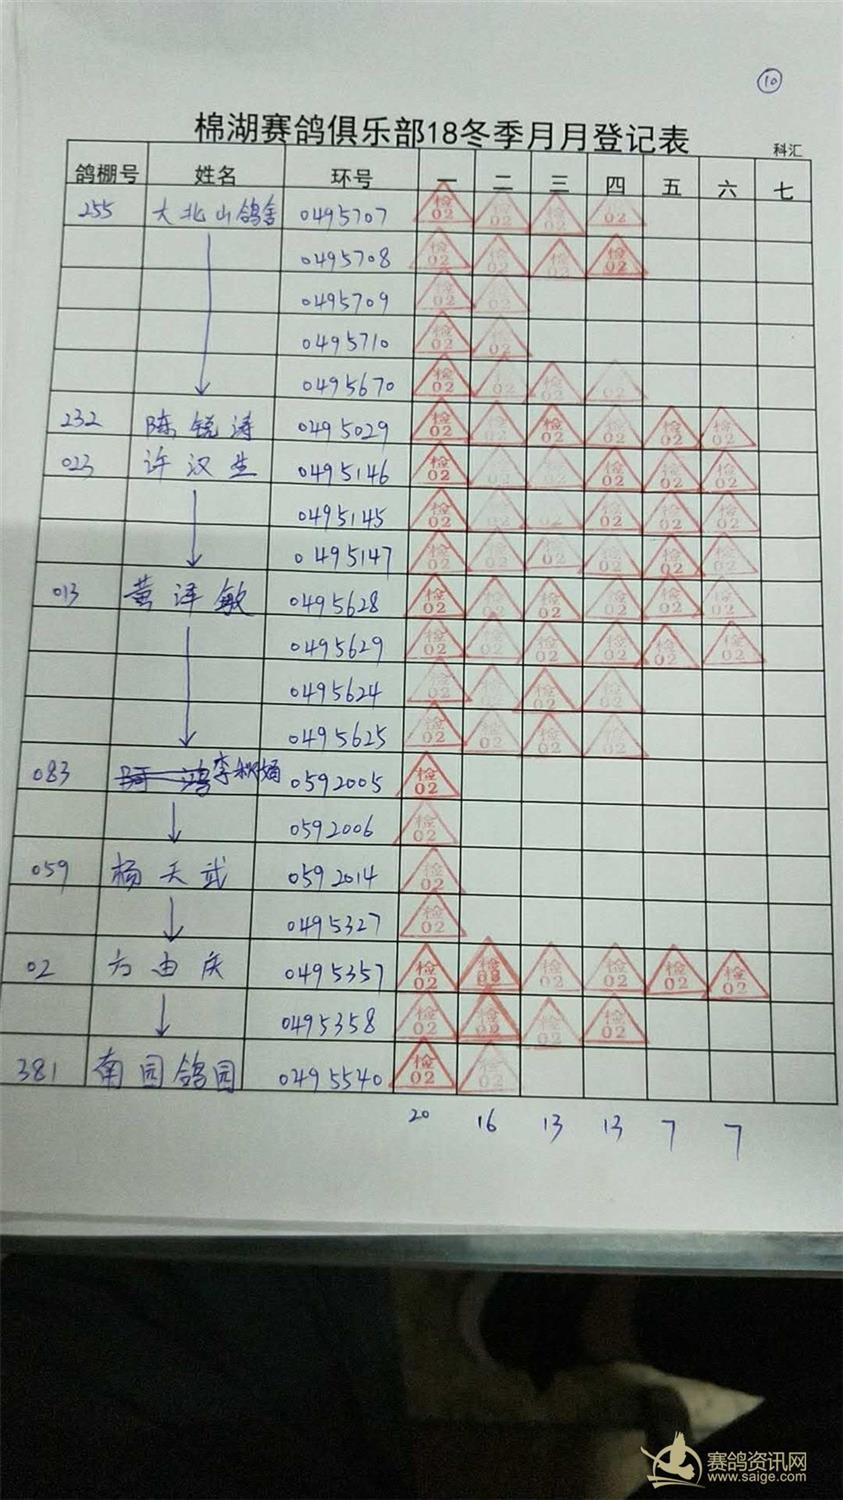 10
棉湖赛鸽俱乐部18冬季月月登记表
科汇
鸽棚号 姓名 环号 一 二 三 四 五 六 七
255 大北山鸽舍 0495707 检02 检02 检02 检02
0495708 检02 检02 检02 检02
0495709 检02 检02
0495710 检02 检02
0495670 检02 检02 检02 检02
232 陈锐涛 0495029 检02 检02 检02 检02 检02 检02
023 许汉生 0495146 检02 检02 检02 检02 检02 检02
0495145 检02 检02 检02 检02 检02 检02
0495147 检02 检02 检02 检02 检02 检02
013 黄泽敏 0495628 检02 检02 检02 检02 检02 检02
0495629 检02 检02 检02 检02 检02 检02
0495624 检02 检02 检02 检02
0495625 检02 检02 检02 检02
083 李 0592005 检02
0592006 检02
059 杨天武 0592014 检02
0495327 检02
02 方由庆 0495357 检02 检02 检02 检02 检02 检02
0495358 检02 检02 检02 检02
381 南园鸽园 0495540 检02 检02
20 16 13 13 7 7
赛鸽资讯网
www.saige.com